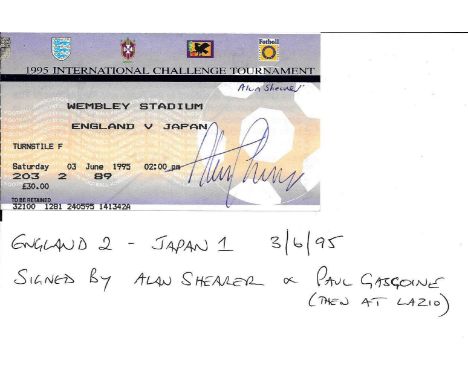 Fotball
1995 INTERNATIONAL CHALLENGE TOURNAMENT
Alan Shearer
WEMBLEY STADIUM
ENGLAND V JAPAN
TURNSTILE F
Saturday 03 June 1995 02:00 pm
203 2 89
£30.00
TO BE RETAINED
32100 1281 240595 141342A
ENGLAND 2 - JAPAN 1 3/6/95
SIGNED BY ALAN SHEARER & PAUL GASGOINE
(THEN AT LAZIO)